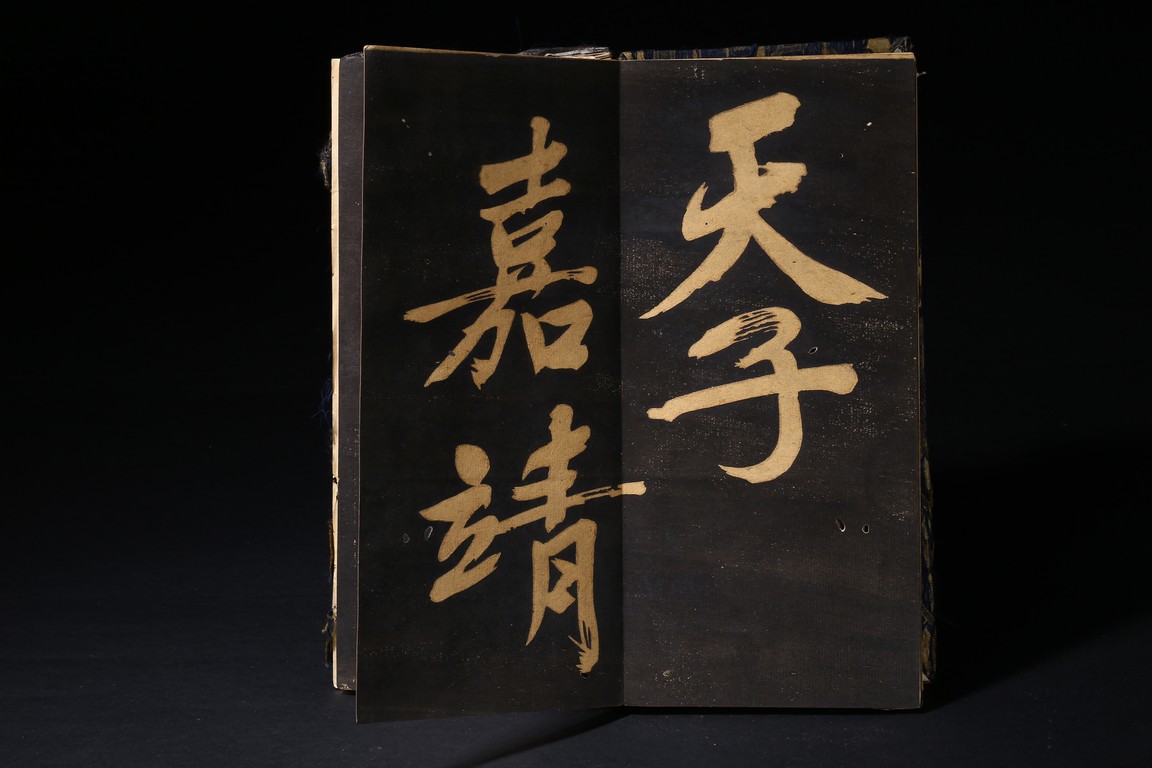 天子
嘉靖